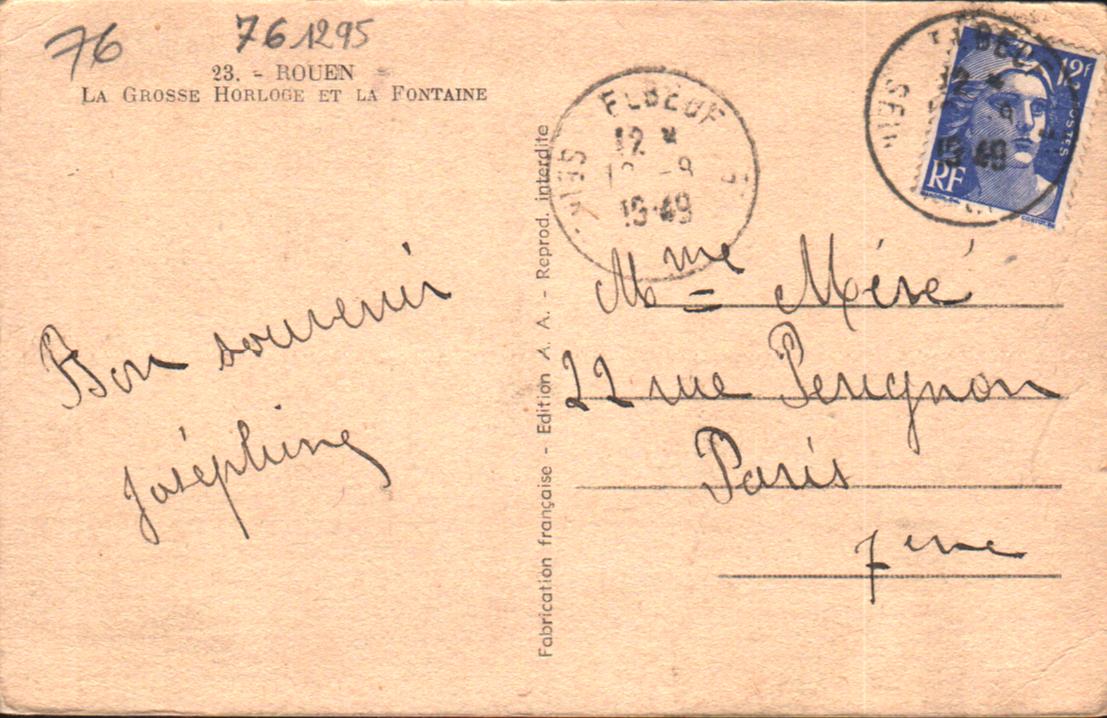 76
761295
23. - ROUEN
LA GROSSE HORLOGE ET LA FONTAINE
Bon souvenir
Joséphine
Fabrication française - Edition A. A. - Reprod. interdite
ELBEUF
12 *
-9
1949
12f
POSTES
RF
ELBEUF
12 *
9
1949
Mme Méré
22 rue Perignon
Paris
7eme